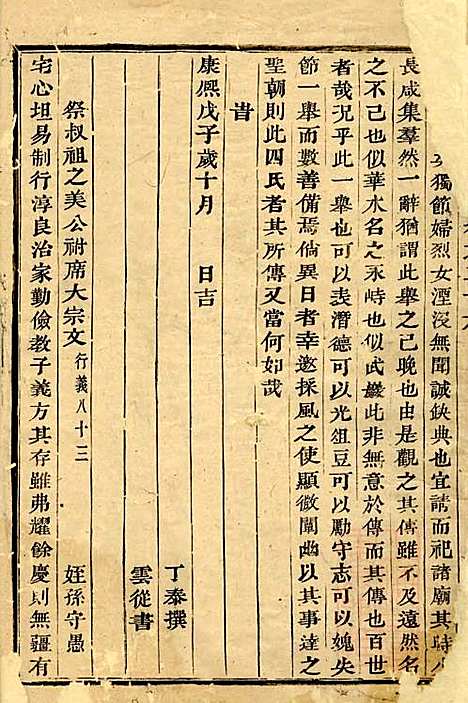 獨節婦烈女湮沒無聞誠缺典也宜請而祀諸廟其時
長咸集羣然一辭猶謂此舉之已晚也由是觀之其傳雖不及遠然名
之不已也似華水名之永峙也似武巖此非無意於傳而其傳也百世
者哉況乎此一舉也可以表潛德可以光俎豆可以勵守志可以媿失
節一舉而數善備焉倘異日者幸邀採風之使顯微闡幽以其事達之
聖朝則此四氏者其所傳又當何如哉
旹
康熙戊子歲十月 日吉
丁泰撰
雲從書
祭叔祖之美公祔席大宗文 行義八十三 姪孫守愚
宅心坦易制行淳良治家勤儉教子義方其存雖弗耀餘慶則無疆有